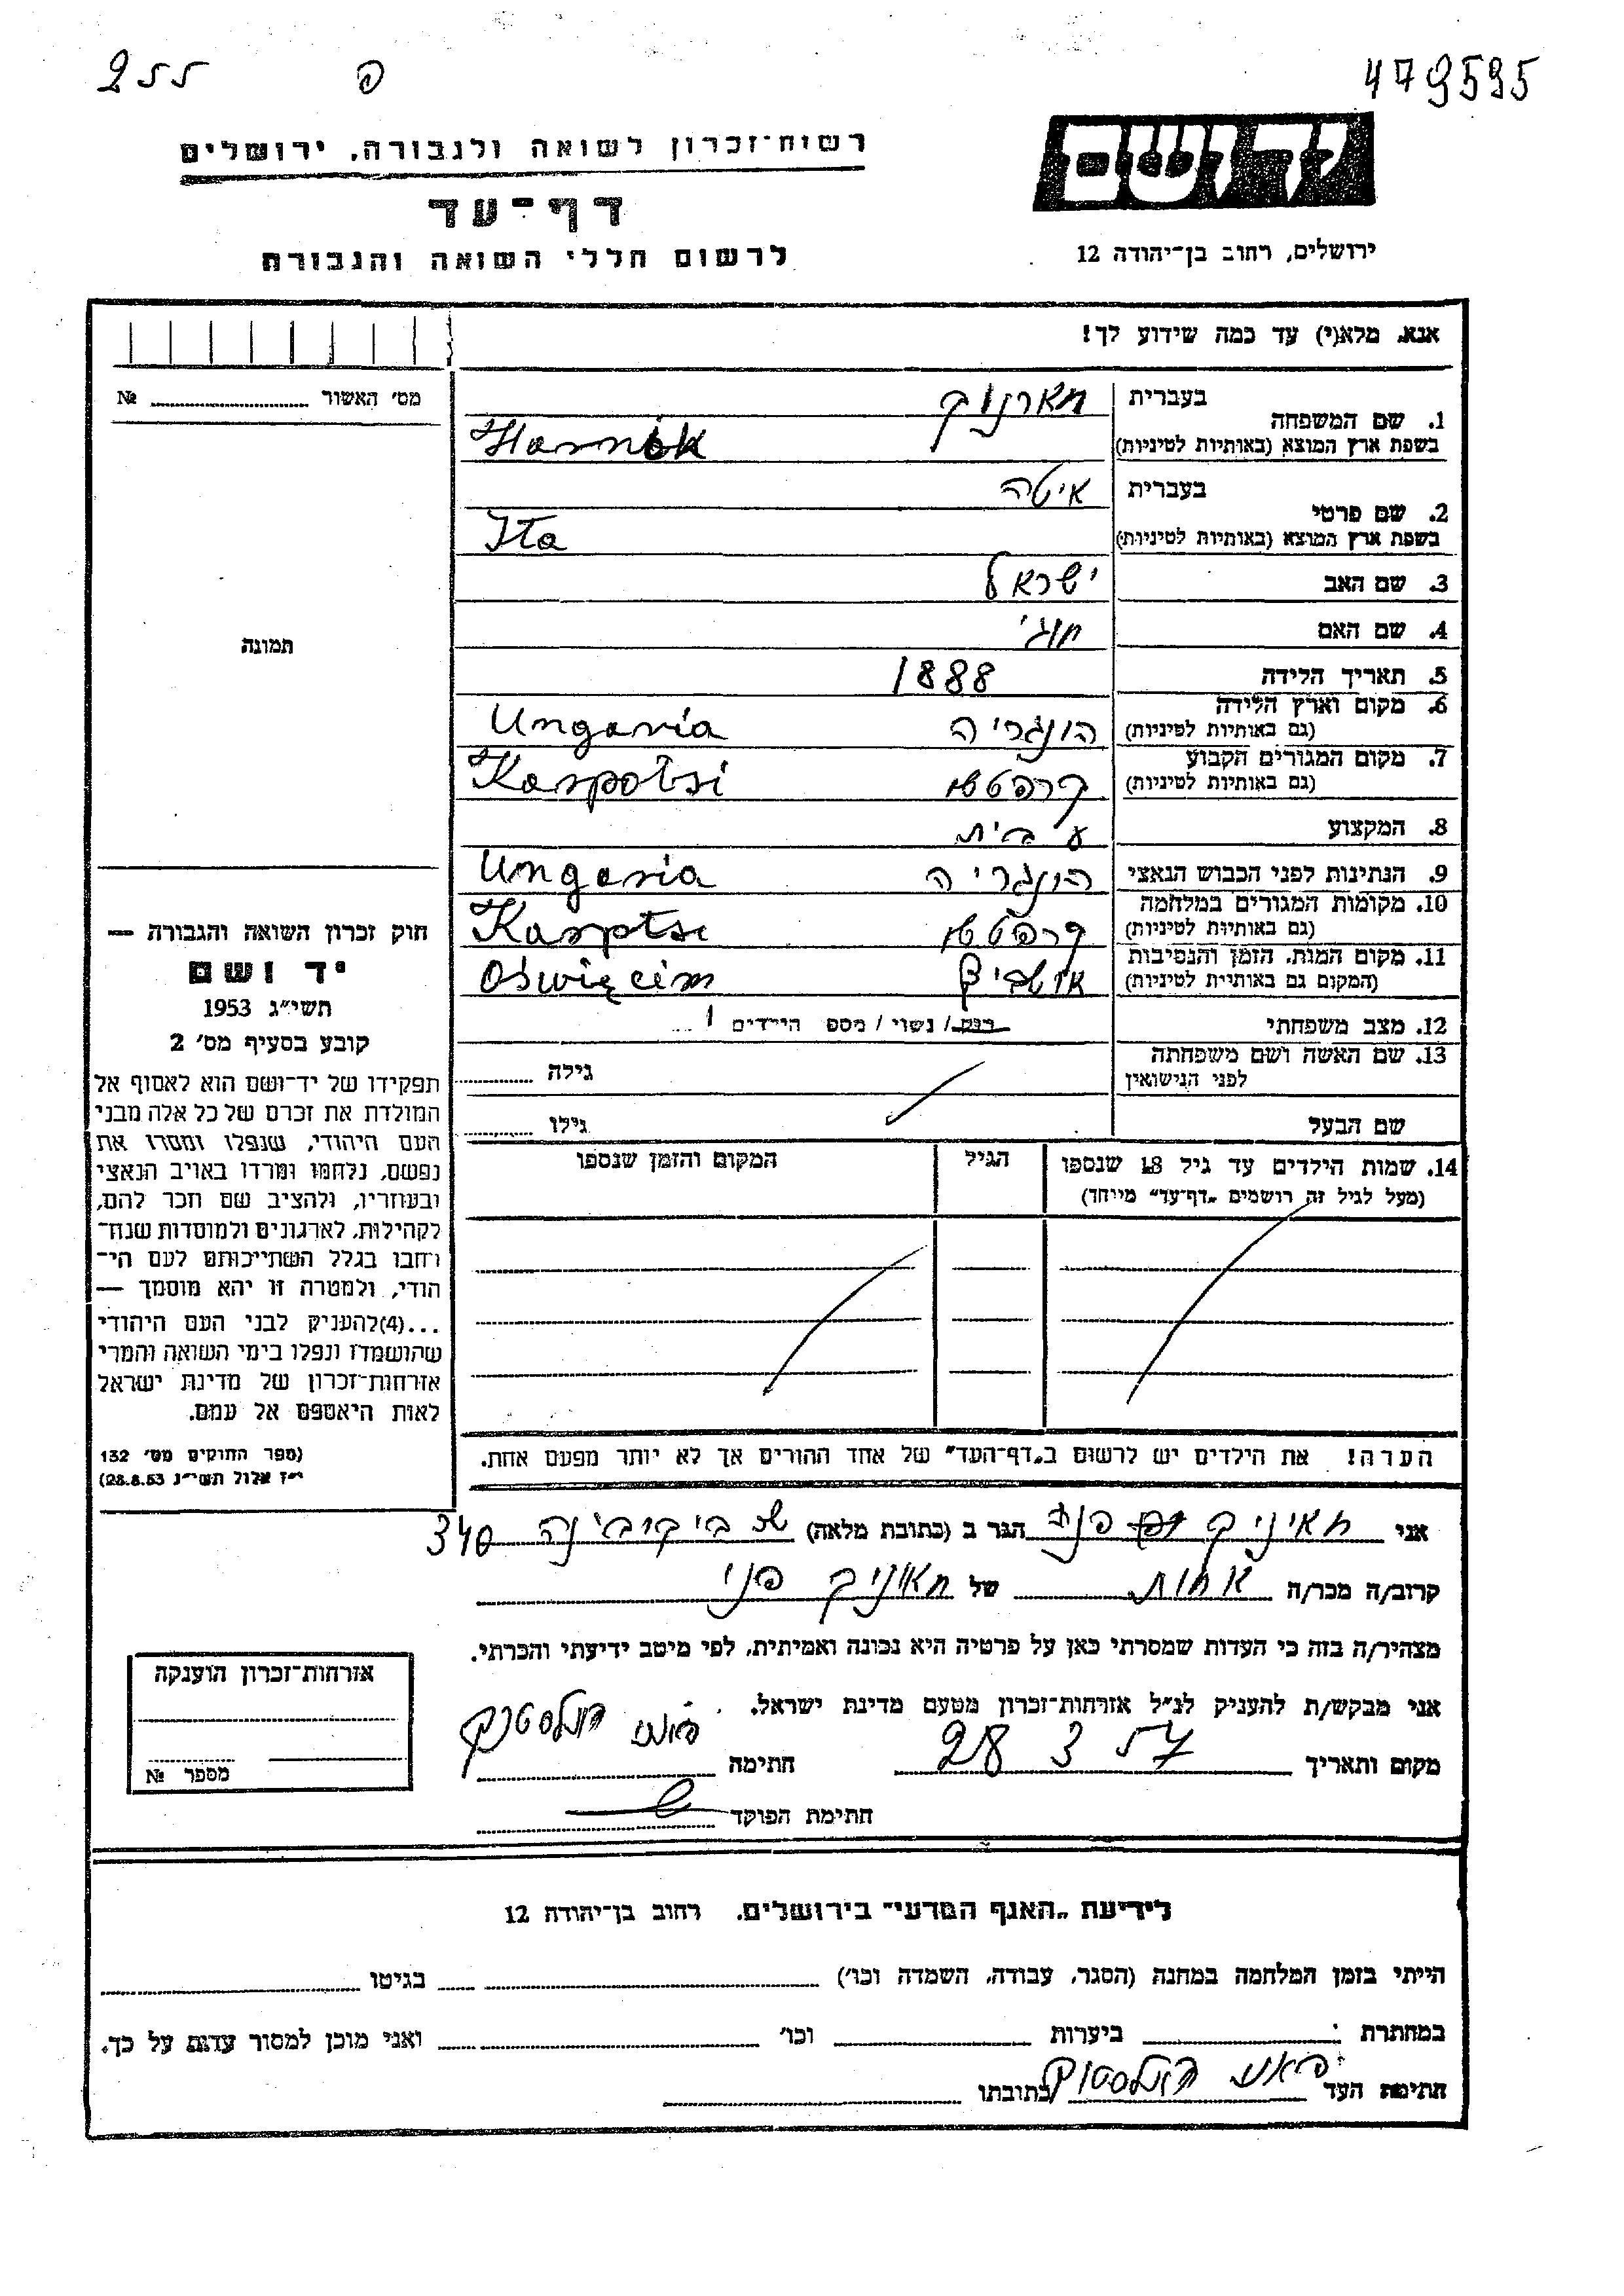 255 פ 479595
רשות־זכרון לשואה ולגבורה, ירושלים
יד ושם
דף־עד
ירושלים, רחוב בן־יהודה 12
לרשום חללי השואה והגבורה
אנא, מלא(י) עד כמה שידוע לך!
מס׳ האשור №
1. שם המשפחה בעברית חארנוק
בשפת ארץ המוצא (באותיות לטיניות) Harnok
2. שם פרטי בעברית איטה
בשפת ארץ המוצא (באותיות לטיניות) Ita
3. שם האב ישראל
4. שם האם חוגי
5. תאריך הלידה 1888
6. מקום וארץ הלידה (גם באותיות לטיניות) הונגריה Ungaria
7. מקום המגורים הקבוע (גם באותיות לטיניות) קרפטשי Karpatsi
8. המקצוע ע בית
9. הנתינות לפני הכבוש הנאצי הונגריה Ungaria
10. מקומות המגורים במלחמה (גם באותיות לטיניות) קרפטשי
11. מקום המות, הזמן והנסיבות (המקום גם באותיות לטיניות) אושביץ Oświęcim
12. מצב משפחתי רווק / נשוי / מספ הילדים 1
13. שם האשה ושם משפחתה לפני הנישואין גילה
שם הבעל גילו
14. שמות הילדים עד גיל 18 שנספו הגיל המקום והזמן שנספו
(מעל לגיל זה רושמים „דף־עד" מייחד)
הערה! את הילדים יש לרשום ב„דף־העד" של אחד ההורים אך לא יותר מפעם אחת.
תמונה
חוק זכרון השואה והגבורה —
יד ושם
תשי״ג 1953
קובע בסעיף מס׳ 2
תפקידו של יד־ושם הוא לאסוף אל
המולדת את זכרם של כל אלה מבני
העם היהודי, שנפלו ומסרו את
נפשם, נלחמו ומרדו באויב הנאצי
ובעוזריו, ולהציב שם וזכר להם,
לקהילות, לארגונים ולמוסדות שנח־
רבו בגלל השתייכותם לעם הי־
הודי, ולמטרה זו יהא מוסמך —
...(4)להעניק לבני העם היהודי
שהושמדו ונפלו בימי השואה והמרי
אזרחות־זכרון של מדינת ישראל
לאות היאספם אל עמם.
(ספר החוקים מס׳ 132
י״ז אלול תשי״ג 28.8.53)
אני פני הגר ב (כתובת מלאה) 340
קרוב/ה מכר/ה אחות של פני
מצהיר/ה בזה כי העדות שמסרתי כאן על פרטיה היא נכונה ואמיתית, לפי מיטב ידיעתי והכרתי.
אני מבקש/ת להעניק לנ״ל אזרחות־זכרון מטעם מדינת ישראל.
מקום ותאריך 28 3 57 חתימה
חתימת הפוקד
אזרחות־זכרון הוענקה
מספר №
לידיעת „האגף המדעי" בירושלים, רחוב בן־יהודה 12
הייתי בזמן המלחמה במחנה (הסגר, עבודה, השמדה וכו׳) בגיטו
במחתרת ביערות וכו׳ ואני מוכן למסור עדות על כך.
חתימת העד כתובתו